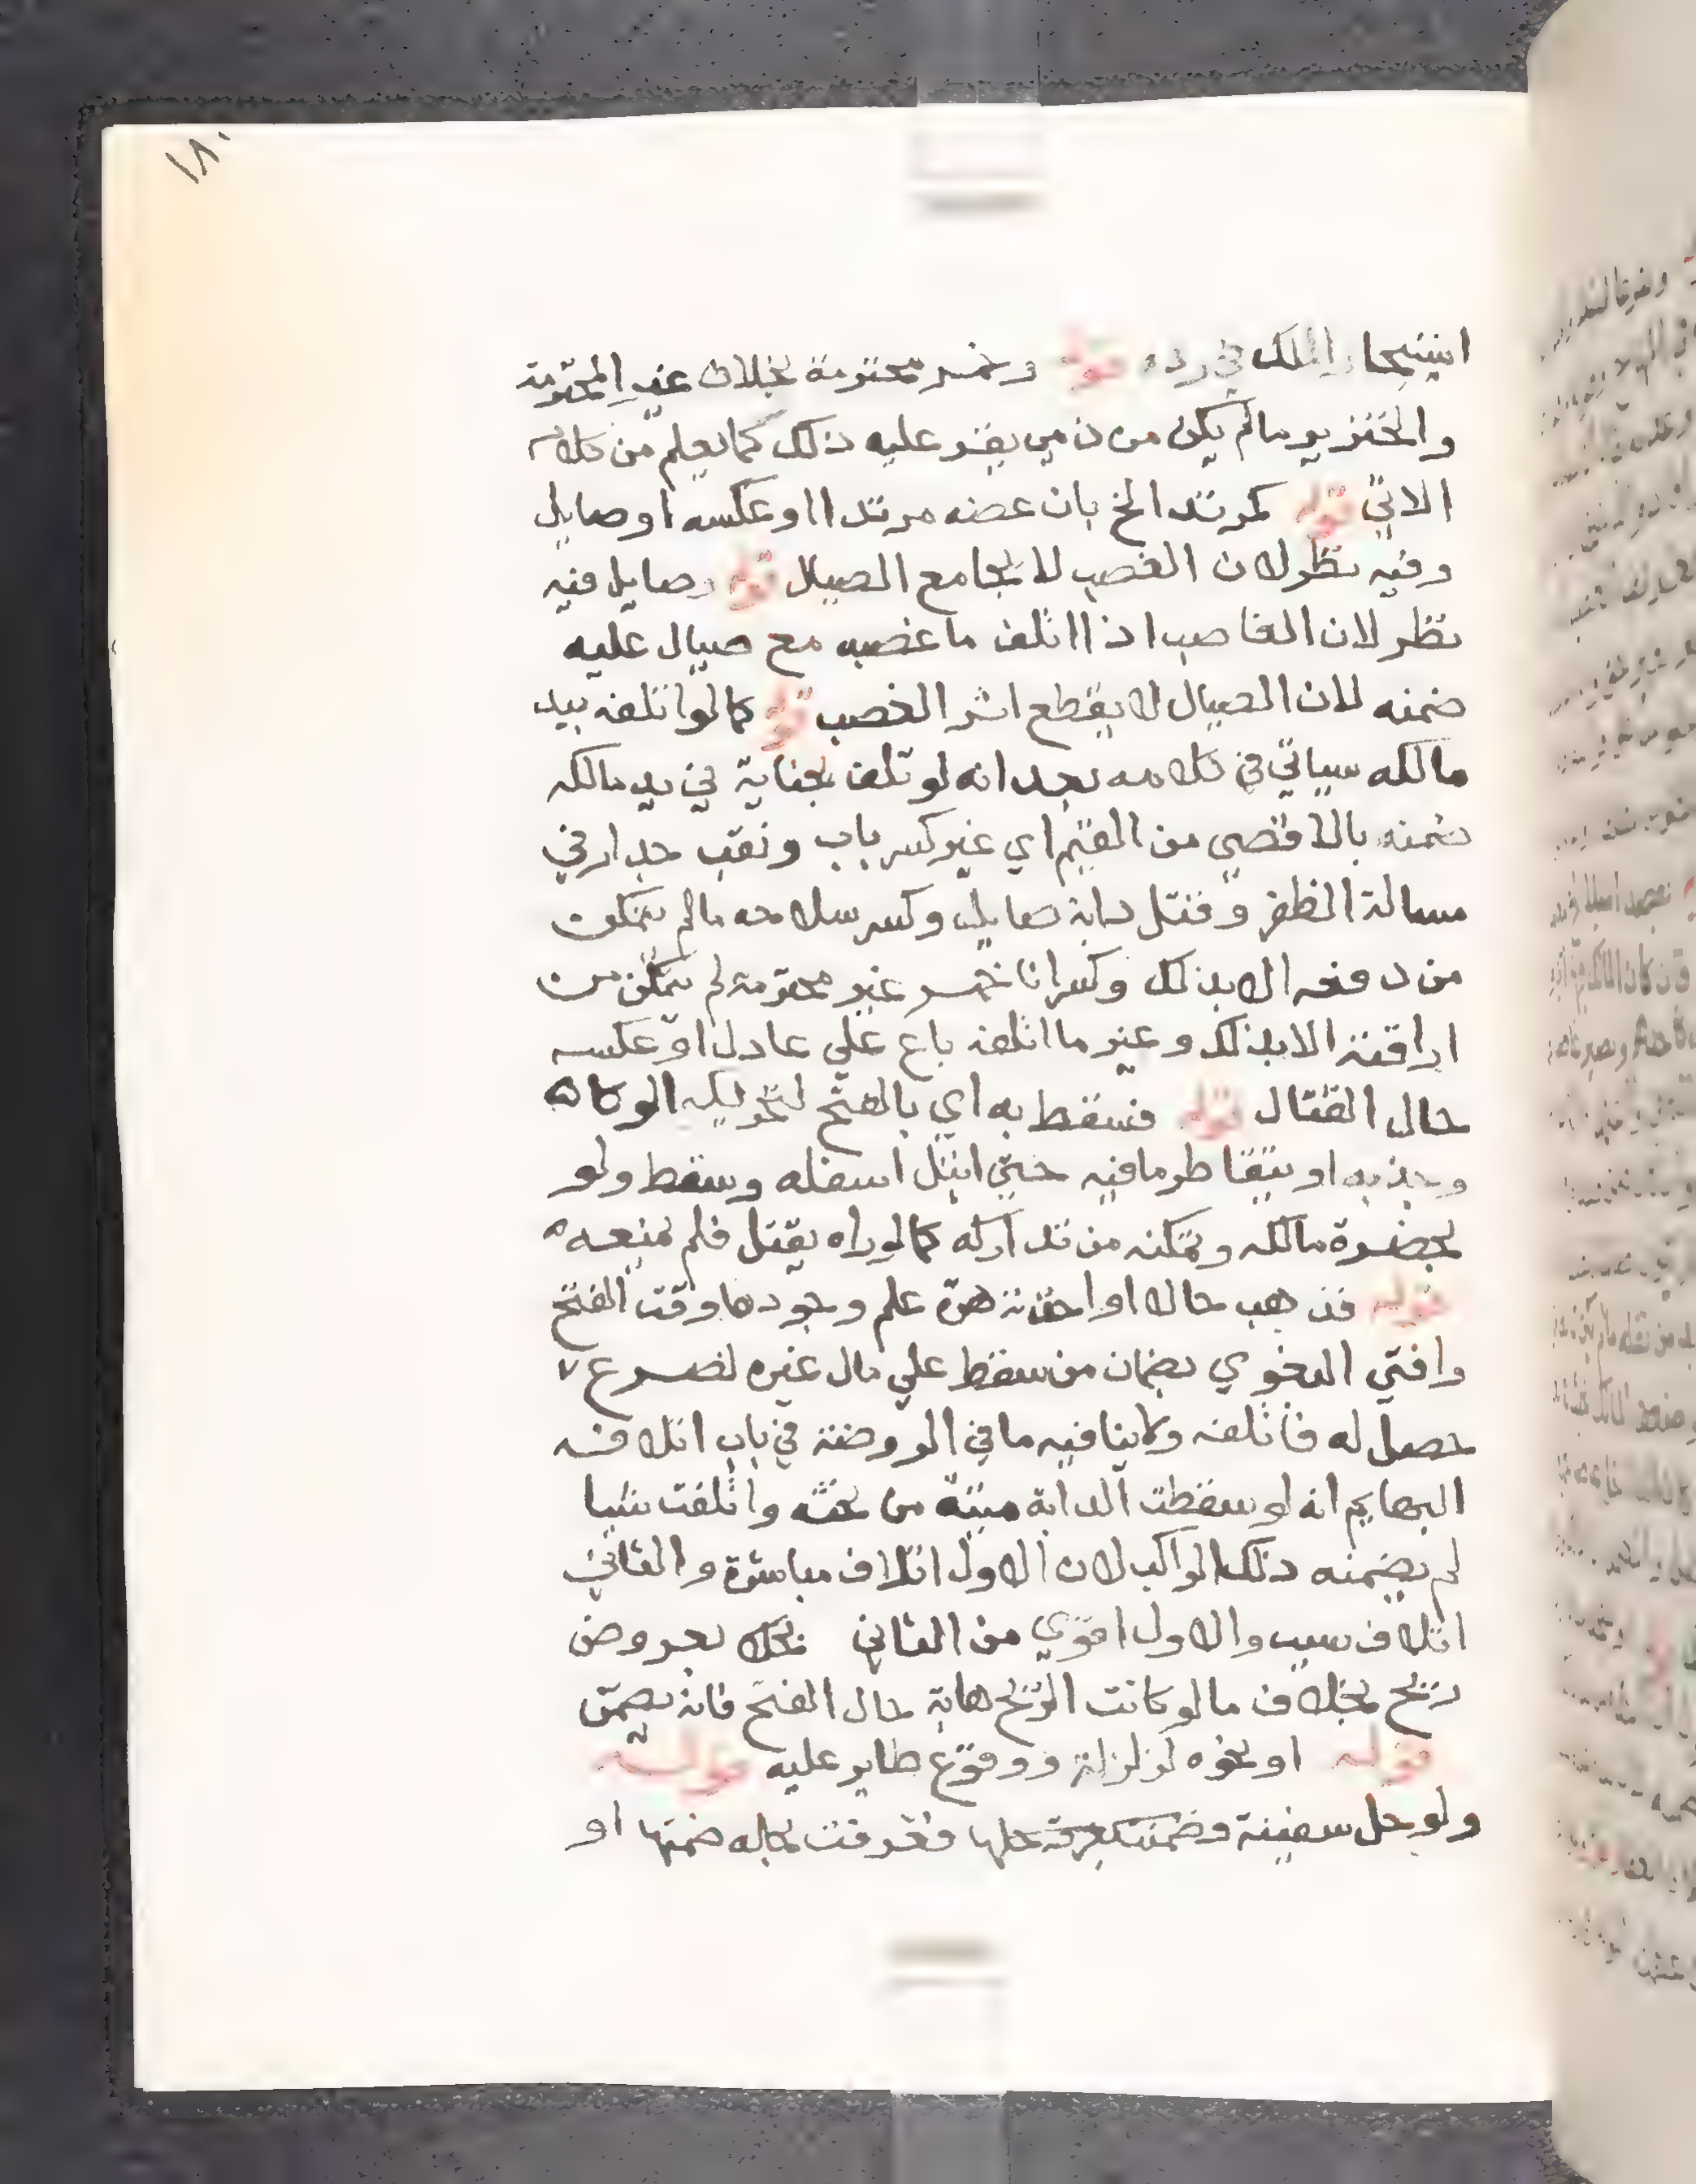 ١٨٠
استيجار المالك في رده قوله وخمر محترمة بخلاف غير المحترمة
والخنزير مالم يكن من ذمي يقر عليه ذلك كما يعلم من كلامه
الاتي قوله كمرتد الخ بان غصبه مرتدا او عكسه او صايل
وفيه نظر لان الغصب لا يجامع الصيال قوله وصايل فيه
نظر لان الغاصب اذا اتلف ما غصبه مع صيال عليه
ضمنه لان الصيال لا يقطع اثر الغصب قوله كما لو اتلفه بيد
مالكه سياتي في كلامه بعد انه لو تلف بجناية في يد مالكه
ضمنه بالاقصي من القيم اي غير كسر باب ونقب جدار في
مسالة الظفر وقتل دابة صايل وكسر سلاحه مالم يتمكن
من دفعه الا بذلك وكسر انا خمر غير محترمة لم يتمكن من
اراقته الا بذلك وغير ما اتلفه باغ علي عادل او عكسه
حال القتال قوله فسقط به اي بالفتح لتحريكه الوكاء
وجذبه او بتقاطر مافيه حتي ابتل اسفله وسقط ولو
بحضرة مالكه وتمكنه من تداركه كما لو راه يقتل فلم يمنعه
قوله فذهب حالا او اخذته هرة علم وجودها وقت الفتح
وافتي البغوي بضمان من سقط علي مال غيره لصرع
حصل له فاتلفه ولا ينافيه ما في الروضة في باب اتلاف
البهايم انه لو سقطت الدابة ميتة من تحته واتلفت شيا
لم يضمنه ذلك الراكب لان الاول اتلاف مباشرة والثاني
اتلاف سبب والاول اقوي من الثاني بعروض
ريح بخلاف ما لو كانت الريح هابة حال الفتح فانه يضمن
قوله او نحوه كزلزلة ووقوع طاير عليه قوله
ولو حل سفينة فغرقت بحله ضمنها او